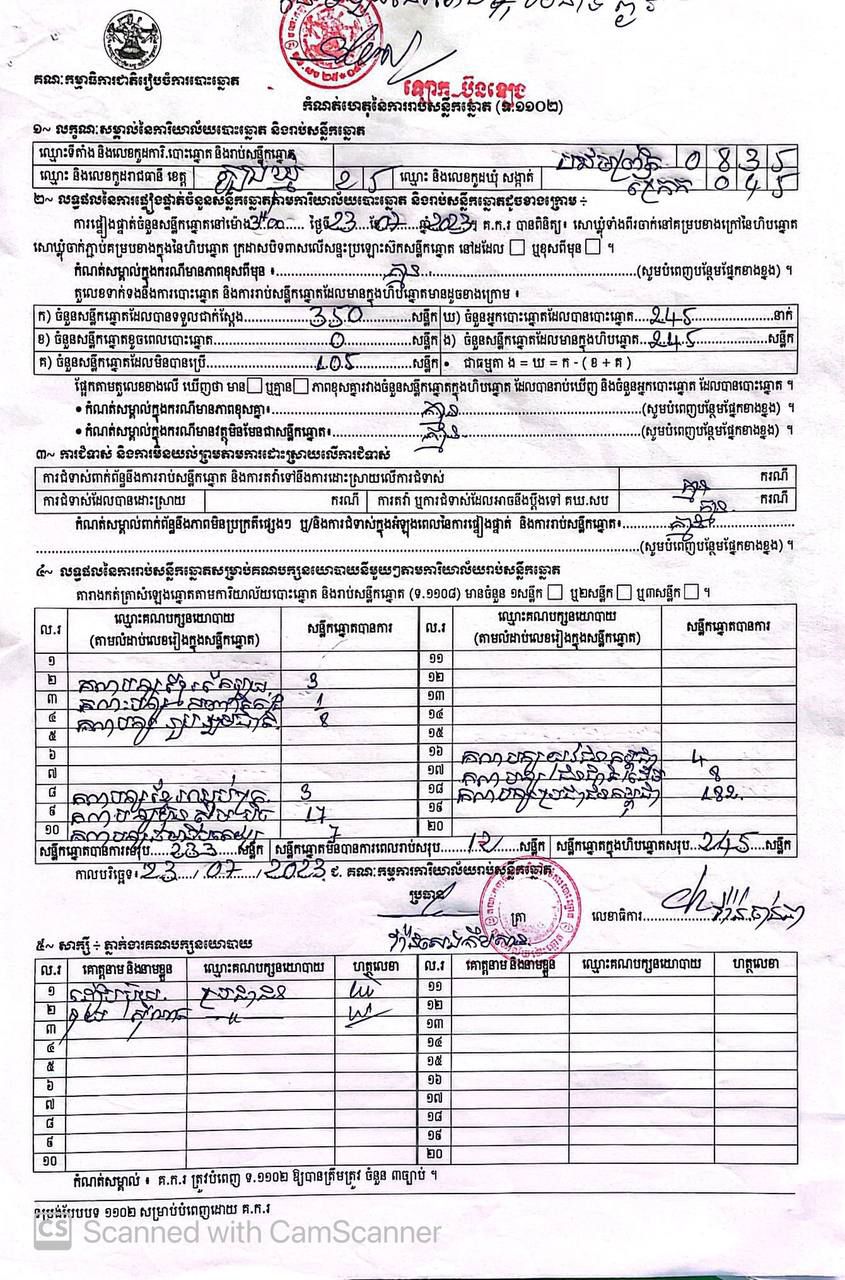 គណៈកម្មាធិការជាតិរៀបចំការបោះឆ្នោត
ឡោក ប៊ុនឡេង
កំណត់ហេតុនៃការរាប់សន្លឹកឆ្នោត (ទ.១១០២)
១~ លក្ខណៈសម្គាល់នៃការិយាល័យបោះឆ្នោត និងរាប់សន្លឹកឆ្នោត
ឈ្មោះទីតាំង និងលេខកូដការិ.បោះឆ្នោត និងរាប់សន្លឹកឆ្នោត 0 8 3 5
ឈ្មោះ និងលេខកូដរាជធានី ខេត្ត ត្បូងឃ្មុំ 2 5 ឈ្មោះ និងលេខកូដឃុំ សង្កាត់ ក្រែក 0 4 5
២~ លទ្ធផលនៃការផ្ទៀងផ្ទាត់ចំនួនសន្លឹកឆ្នោតតាមការិយាល័យបោះឆ្នោត និងរាប់សន្លឹកឆ្នោតដូចខាងក្រោម ÷
ការផ្ទៀងផ្ទាត់ចំនួនសន្លឹកឆ្នោតនៅម៉ោង ថ្ងៃទី23 ខែ07 ឆ្នាំ2023។ គ.ក.រ បានពិនិត្យ៖ សោឃ្លុំទាំងពីរចាក់នៅគម្របខាងក្រៅនៃហិបឆ្នោត
សោឃ្លុំចាក់ភ្ជាប់គម្របខាងក្នុងនៃហិបឆ្នោត ក្រដាសបិទពាសលើសន្ទះប្រឡោះសិកសន្លឹកឆ្នោត នៅដដែល ☐ ឬខុសពីមុន ☐ ។
កំណត់សម្គាល់ក្នុងករណីមានភាពខុសពីមុន ៖ គ្មាន (សូមបំពេញបន្ថែមផ្នែកខាងខ្នង) ។
តួលេខទាក់ទងនឹងការបោះឆ្នោត និងការរាប់សន្លឹកឆ្នោតដែលមានក្នុងហិបឆ្នោតមានដូចខាងក្រោម ៖
ក) ចំនួនសន្លឹកឆ្នោតដែលបានទទួលជាក់ស្តែង 350 សន្លឹក ឃ) ចំនួនអ្នកបោះឆ្នោតដែលបានបោះឆ្នោត 245 នាក់
ខ) ចំនួនសន្លឹកឆ្នោតខូចពេលបោះឆ្នោត 0 សន្លឹក ង) ចំនួនសន្លឹកឆ្នោតដែលមានក្នុងហិបឆ្នោត 245 សន្លឹក
គ) ចំនួនសន្លឹកឆ្នោតដែលមិនបានប្រើ 105 សន្លឹក • ជាធម្មតា ង = ឃ = ក - ( ខ + គ )
ផ្អែកតាមតួលេខខាងលើ ឃើញថា មាន ☐ ឬគ្មាន ☐ ភាពខុសគ្នារវាងចំនួនសន្លឹកឆ្នោតក្នុងហិបឆ្នោត ដែលបានរាប់ឃើញ និងចំនួនអ្នកបោះឆ្នោត ដែលបានបោះឆ្នោត ។
• កំណត់សម្គាល់ក្នុងករណីមានភាពខុសគ្នា៖ គ្មាន (សូមបំពេញបន្ថែមផ្នែកខាងខ្នង) ។
• កំណត់សម្គាល់ក្នុងករណីមានវត្ថុមិនមែនជាសន្លឹកឆ្នោត៖ គ្មាន (សូមបំពេញបន្ថែមផ្នែកខាងខ្នង) ។
៣~ ការជំទាស់ និងការមិនយល់ព្រមតាមការដោះស្រាយលើការជំទាស់
ការជំទាស់ពាក់ព័ន្ធនឹងការរាប់សន្លឹកឆ្នោត និងការតវ៉ាទៅនឹងការដោះស្រាយលើការជំទាស់ គ្មាន ករណី
ការជំទាស់ដែលបានដោះស្រាយ ករណី ការតវ៉ា ឬការជំទាស់ដែលអាចនឹងប្តឹងទៅ គឃ.សប គ្មាន ករណី
កំណត់សម្គាល់ពាក់ព័ន្ធនឹងភាពមិនប្រក្រតីផ្សេងៗ ឬ/និងការជំទាស់ក្នុងអំឡុងពេលនៃការផ្ទៀងផ្ទាត់ និងការរាប់សន្លឹកឆ្នោត៖ គ្មាន
(សូមបំពេញបន្ថែមផ្នែកខាងខ្នង) ។
៤~ លទ្ធផលនៃការរាប់សន្លឹកឆ្នោតសម្រាប់គណបក្សនយោបាយនីមួយៗតាមការិយាល័យរាប់សន្លឹកឆ្នោត
តារាងកត់ត្រាសំឡេងឆ្នោតតាមការិយាល័យបោះឆ្នោត និងរាប់សន្លឹកឆ្នោត (ទ.១១០៨) មានចំនួន ១សន្លឹក ☐ ឬ២សន្លឹក ☐ ឬ៣សន្លឹក ☐ ។
ល.រ ឈ្មោះគណបក្សនយោបាយ (តាមលំដាប់លេខរៀងក្នុងសន្លឹកឆ្នោត) សន្លឹកឆ្នោតបានការ ល.រ ឈ្មោះគណបក្សនយោបាយ (តាមលំដាប់លេខរៀងក្នុងសន្លឹកឆ្នោត) សន្លឹកឆ្នោតបានការ
១ ១១
២ គណបក្ស 3 ១២
៣ គណបក្ស 1 ១៣
៤ គណបក្ស 8 ១៤
៥ ១៥
៦ ១៦ គណបក្ស 4
៧ ១៧ គណបក្ស 8
៨ គណបក្ស 3 ១៨ គណបក្សប្រជាជនកម្ពុជា 182
៩ គណបក្ស 17 ១៩
១០ គណបក្ស 7 ២០
សន្លឹកឆ្នោតបានការសរុប 233 សន្លឹក សន្លឹកឆ្នោតមិនបានការពេលរាប់សរុប 12 សន្លឹក សន្លឹកឆ្នោតក្នុងហិបសរុប 245 សន្លឹក
កាលបរិច្ឆេទ៖ 23 / 07 / 2023 ជ. គណៈកម្មការការិយាល័យរាប់សន្លឹកឆ្នោត
ប្រធាន ត្រា លេខាធិការ
៥~ សាក្សី ÷ ភ្នាក់ងារគណបក្សនយោបាយ
ល.រ គោត្តនាម និងនាមខ្លួន ឈ្មោះគណបក្សនយោបាយ ហត្ថលេខា ល.រ គោត្តនាម និងនាមខ្លួន ឈ្មោះគណបក្សនយោបាយ ហត្ថលេខា
១ ប្រជាជន ១១
២ ១២
៣ ១៣
៤ ១៤
៥ ១៥
៦ ១៦
៧ ១៧
៨ ១៨
៩ ១៩
១០ ២០
កំណត់សម្គាល់ ៖ គ.ក.រ ត្រូវបំពេញ ទ.១១០២ ឱ្យបានត្រឹមត្រូវ ចំនួន ៣ច្បាប់ ។
ទម្រង់បែបបទ ១១០២ សម្រាប់បំពេញដោយ គ.ក.រ
CS Scanned with CamScanner